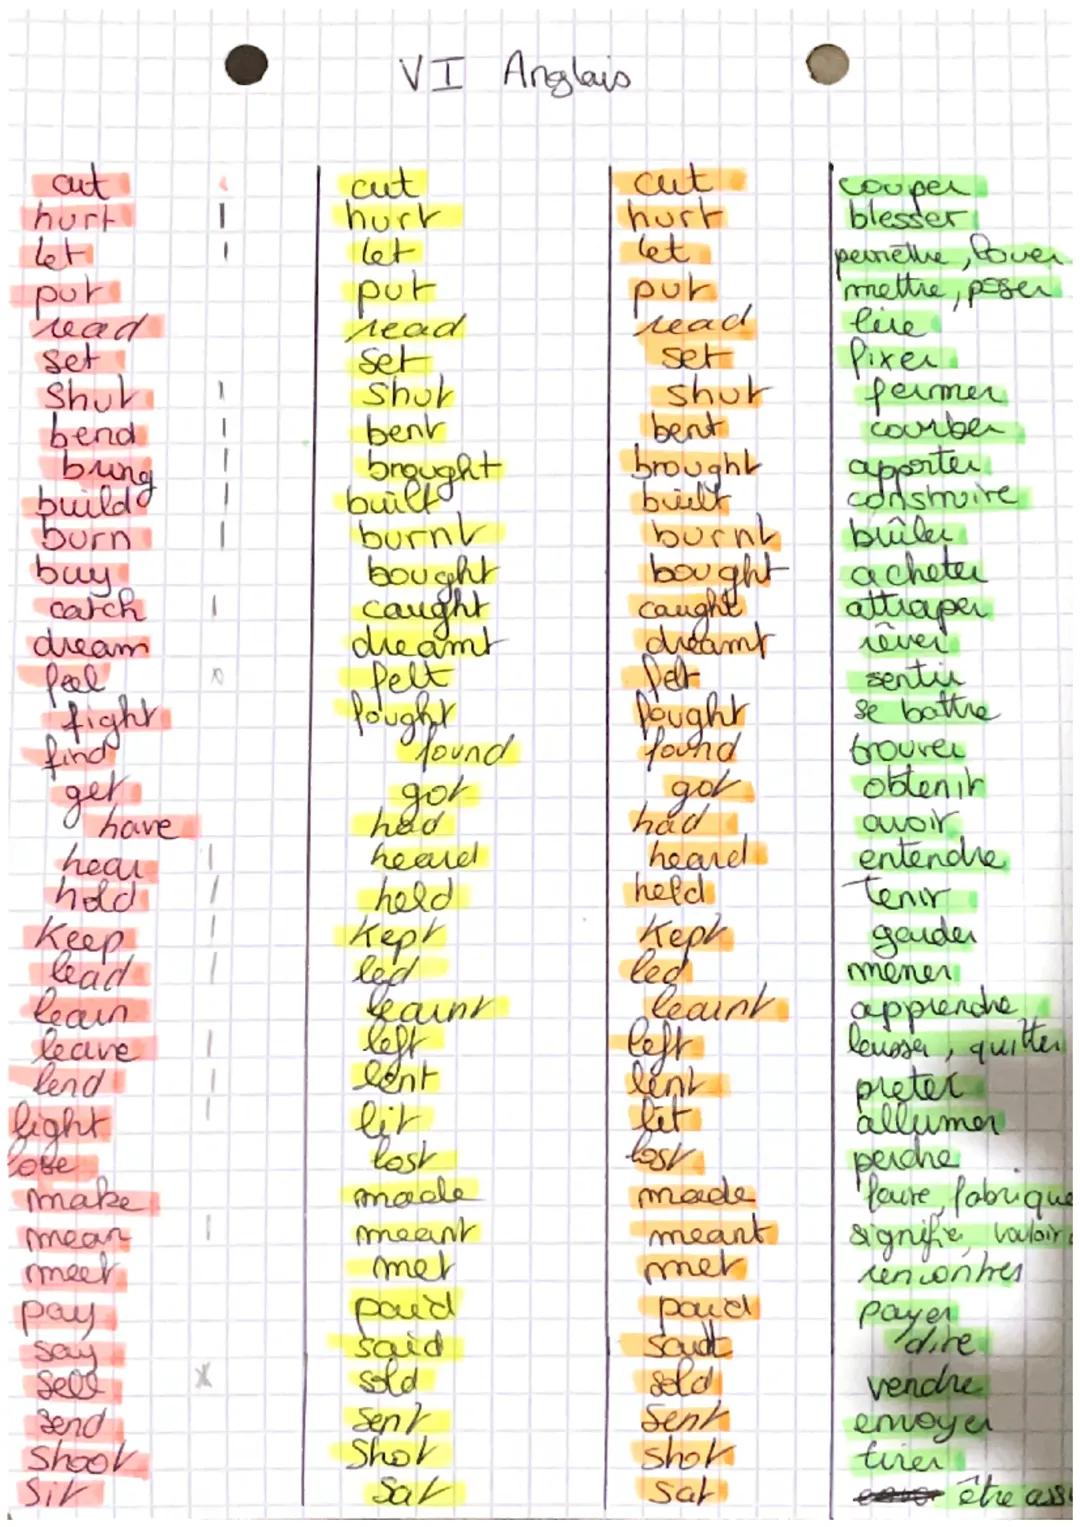 VI Anglais
cut cut cut couper
hurt hurt hurt blesser
let let let permettre, louer
put put put mettre, poser
read read read lire
set set set fixer
Shut Shut shut fermer
bend bent bent courber
bring brought brought apporter
build built built construire
burn burnt burnt brûler
buy bought bought acheter
catch caught caught attraper
dream dreamt dreamt rêver
feel felt felt sentir
fight fought fought se battre
find found found trouver
get got got obtenir
have had had avoir
hear heard heard entendre
hold held held Tenir
Keep Kept Kept garder
lead led led mener
learn learnt learnt apprendre
leave left left laisser, quitter
lend lent lent preter
light lit lit allumer
lose lost lost perdre
make made made faire, fabrique
mean meant meant signifie, vouloir
meet met met rencontres
pay paid paid payer
say said said dire
Sell sold sold vendre
send Sent Sent envoyer
Shoot Shot shot tirer
Sit Sat sat être ass